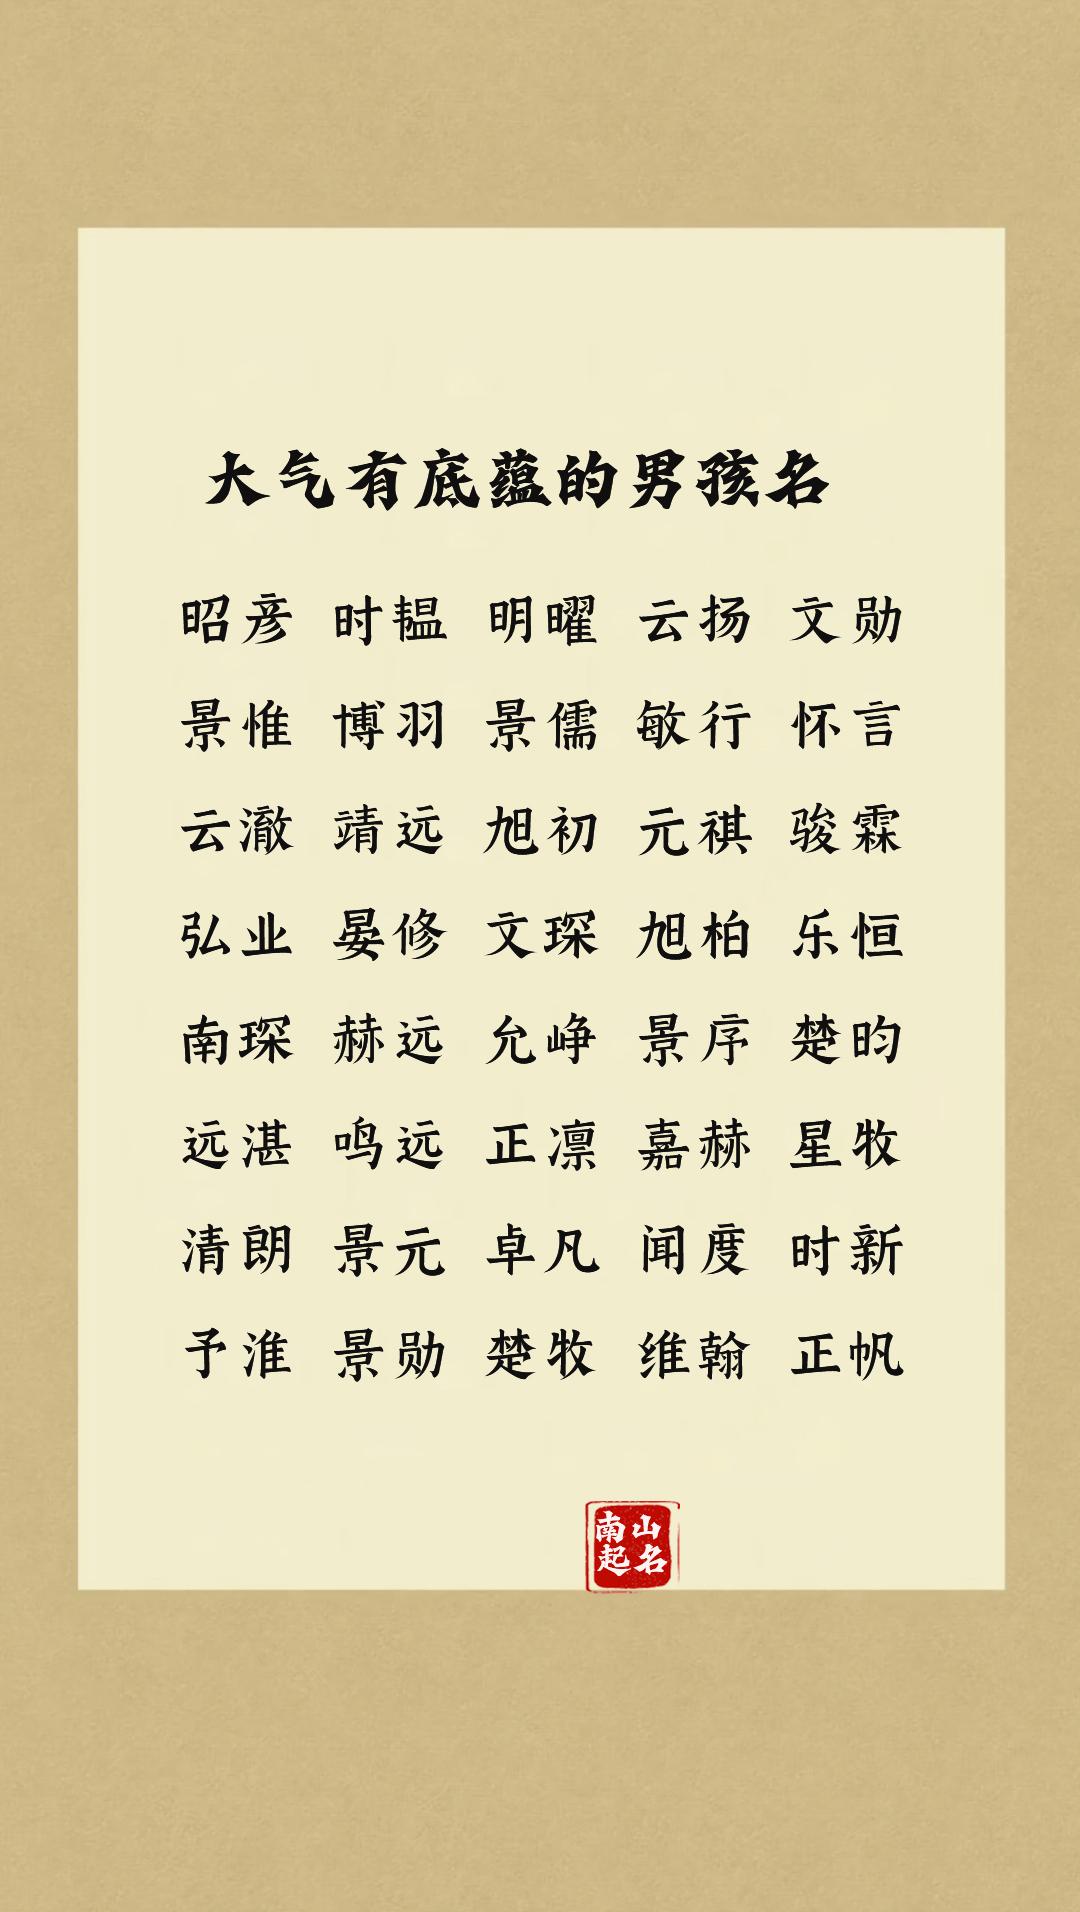 大气有底蕴的男孩名
昭彦 时韫 明曜 云扬 文勋
景惟 博羽 景儒 敏行 怀言
云澈 靖远 旭初 元祺 骏霖
弘业 晏修 文琛 旭柏 乐恒
南琛 赫远 允峥 景序 楚昀
远湛 鸣远 正凛 嘉赫 星牧
清朗 景元 卓凡 闻度 时新
予淮 景勋 楚牧 维翰 正帆
南山
起名